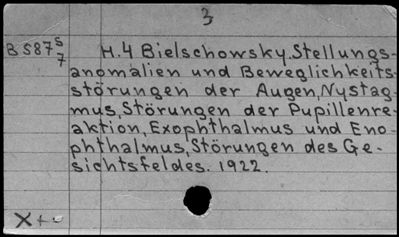 3
B587 5/7 H.4 Bielschowsky, Stellungs-
anomalien und Beweglichkeits-
störungen der Augen, Nystag-
mus, Störungen der Pupillenre-
aktion, Exophthalmus und Eno-
phthalmus, Störungen des Ge-
sichtsfeldes. 1922.
X+-